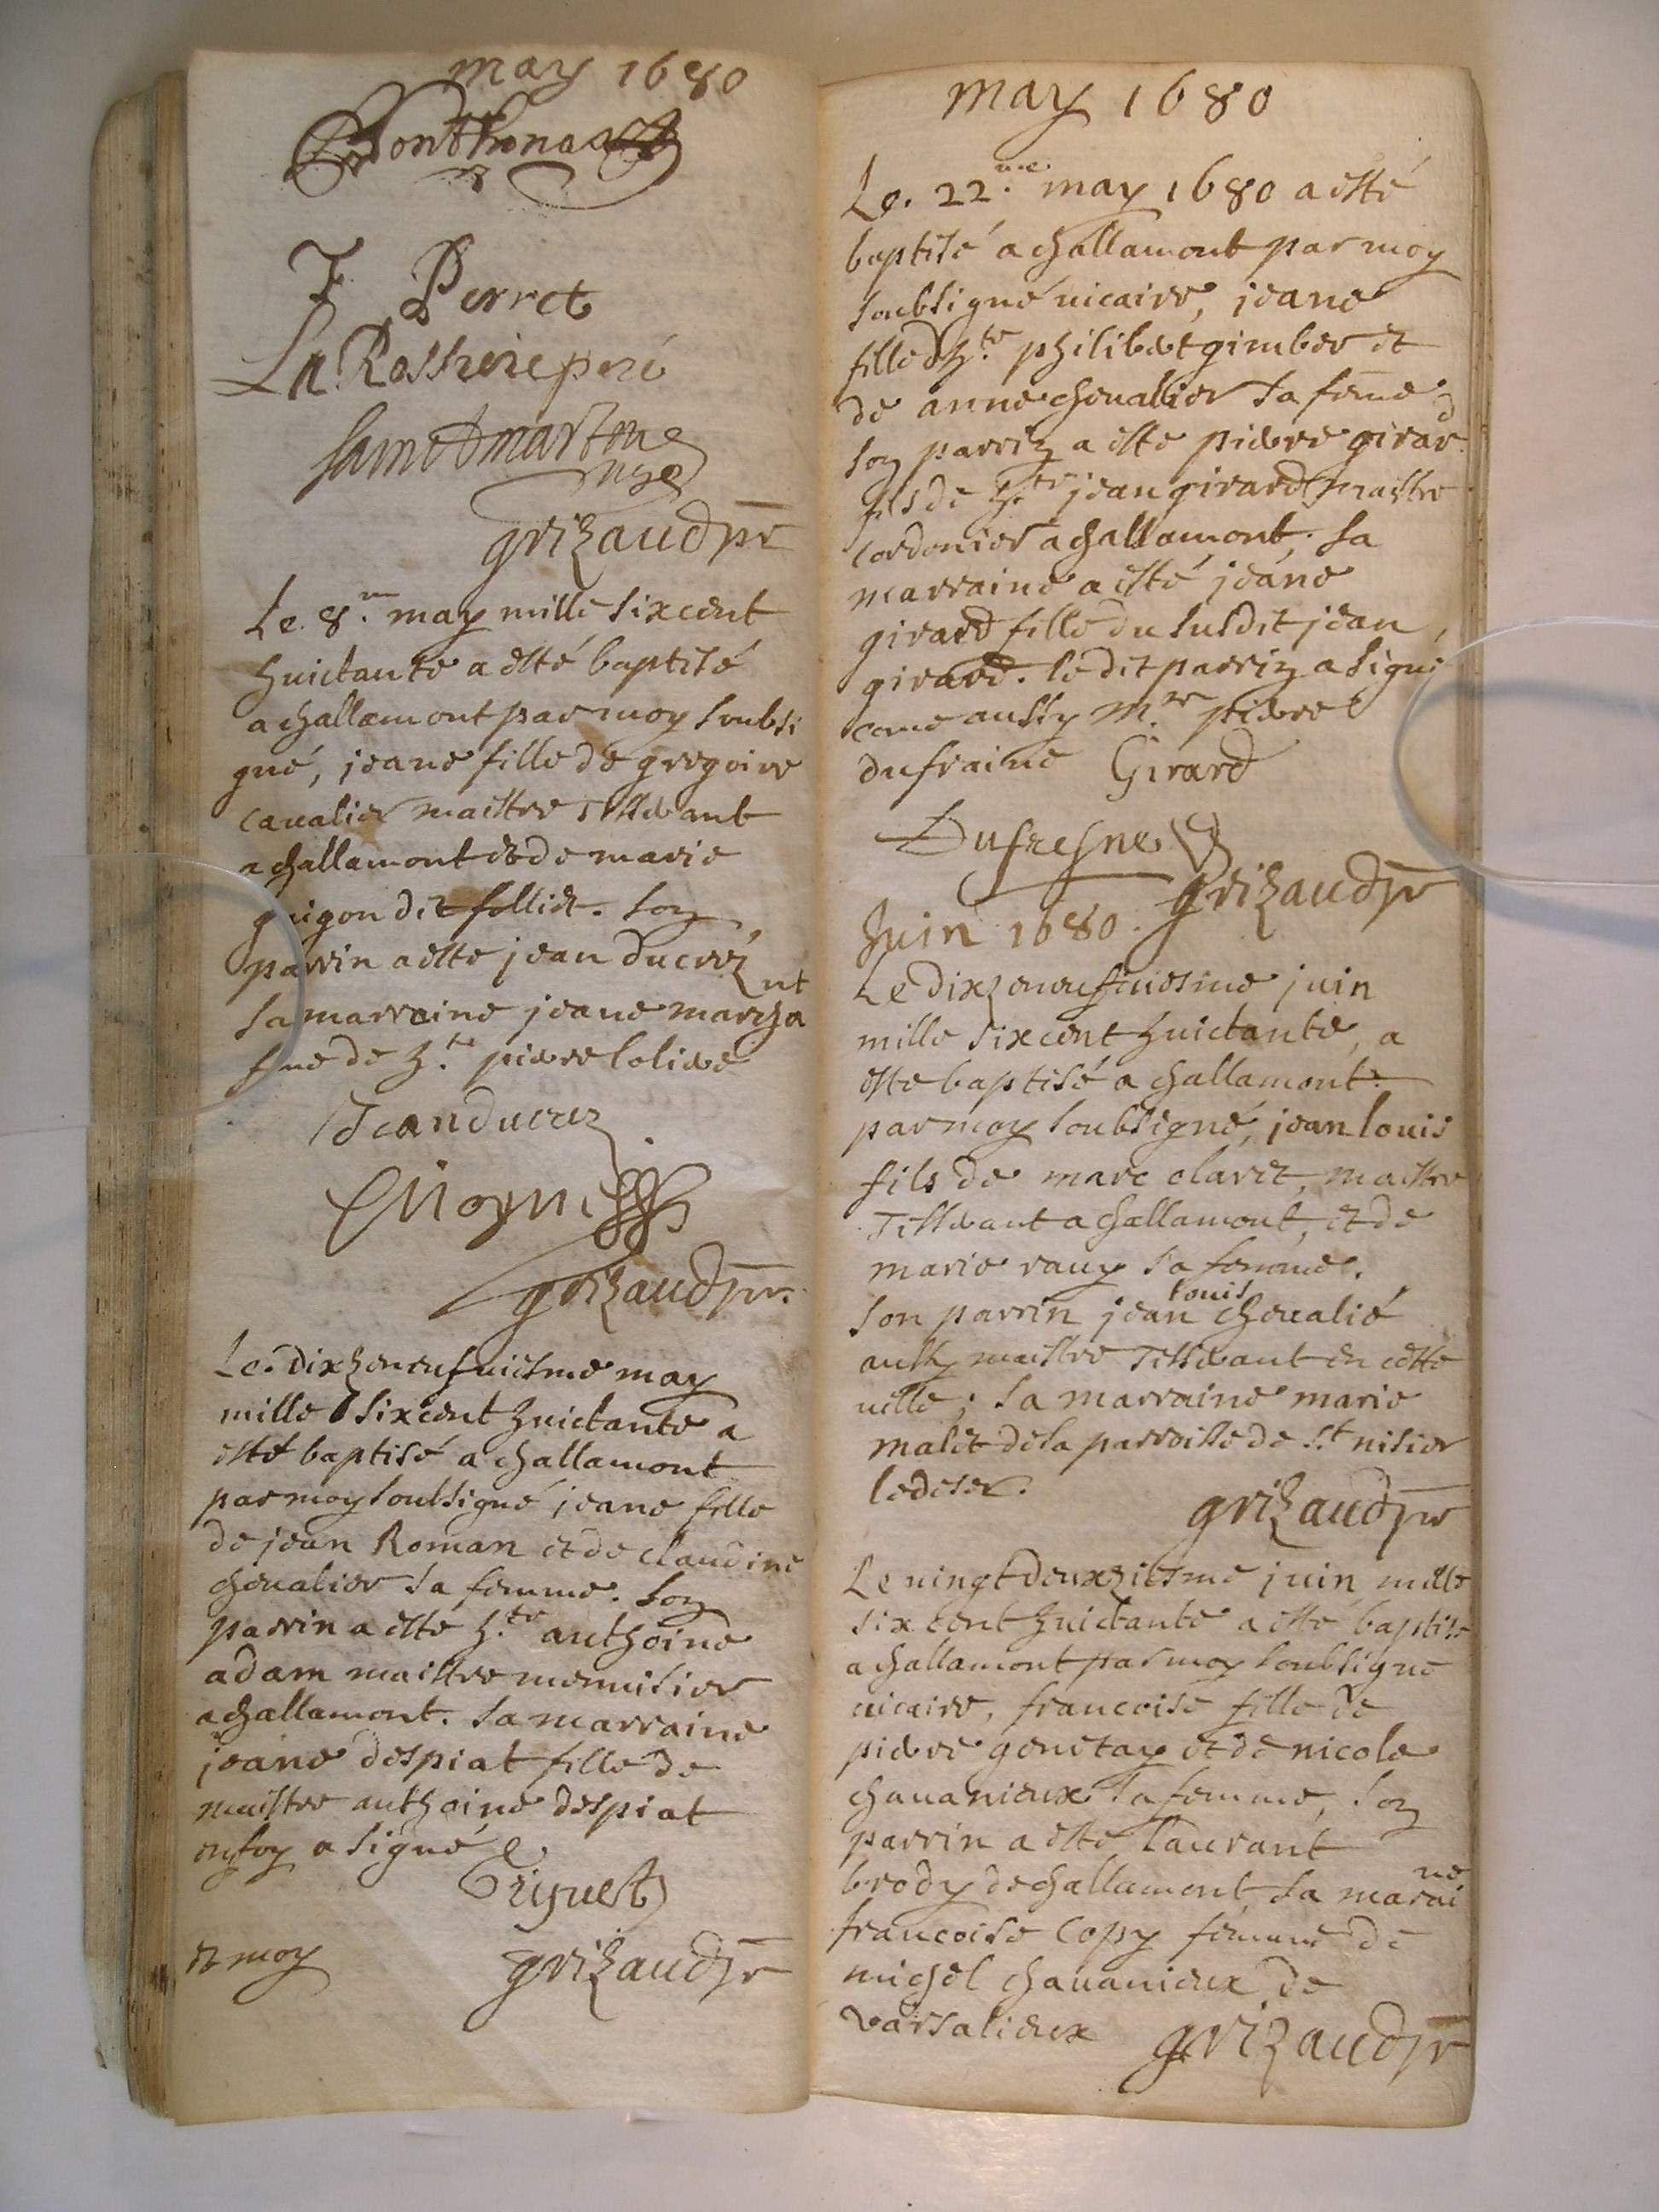 may 1680
F Perret
grizaud pr
Le 8.me may mille sixcent
huictante a esté baptisé
a challamont par moy soubsi
gné, jeane fille de gregoire
cavalier maittre Tisserant
a challamont et de marie
guigon dit follier. Son
parrin a este jean ducrez,
sa marraine jeane marcha nt
fme de h.te pierre lolive
Jean ducrez
Moyne
grizaud pr.
Le. dixzeneufviesme may
mille sixcent huictante a
esté baptisé a challamont
par moy soubsigné jeane fille
de jean Roman et de claudine
chevalier sa femme. Son
parrin a esté h.te anthoine
adam maittre menuisier
a challamont. Sa marraine
jeane despiat fille de
maistre anthoine despiat
a signé
et moy grizaud pr
may 1680
Le. 22.me may 1680 a esté
baptisé a challamont par moy
soubsigné vicaire, jeane
fille d'h.te philibert gimber et
de anne chevallier sa feme
son parrin a esté pierre girar d
fils de h.te jean girard maistre
cordonier a challamont, sa
marraine a esté jeane
girard fille du susdit jean
girard. le dit parrin a signé
come aussy M.re pierre
dufraine Girard
Dufresne
grizaud pr
Juin 1680.
Le dixzeneufviesme juin
mille sixcent huictante, a
este baptisé a challamont
par moy soubsigné, jean louis
fils de marc claret, maittre
Tisserant a challamont, et de
marie raux sa femme.
Son parrin jean louis chevalié
aussy maittre Tisserant en cette
ville; sa marraine marie
malet de la parroisse de S.t nisier
le deser.
grizaud pr
Le vingtdeuxziesme juin mille
six cent huictante a esté baptisé
a challamont par moy soubsigné
vicaire, francoise fille de
pierre genetay et de nicole
chavanieux sa femme, son
parrin a esté laurant
brody de challamont, sa marai ne
francoise Copy femme de
michel chavanieux de
versalieux grizaud pr